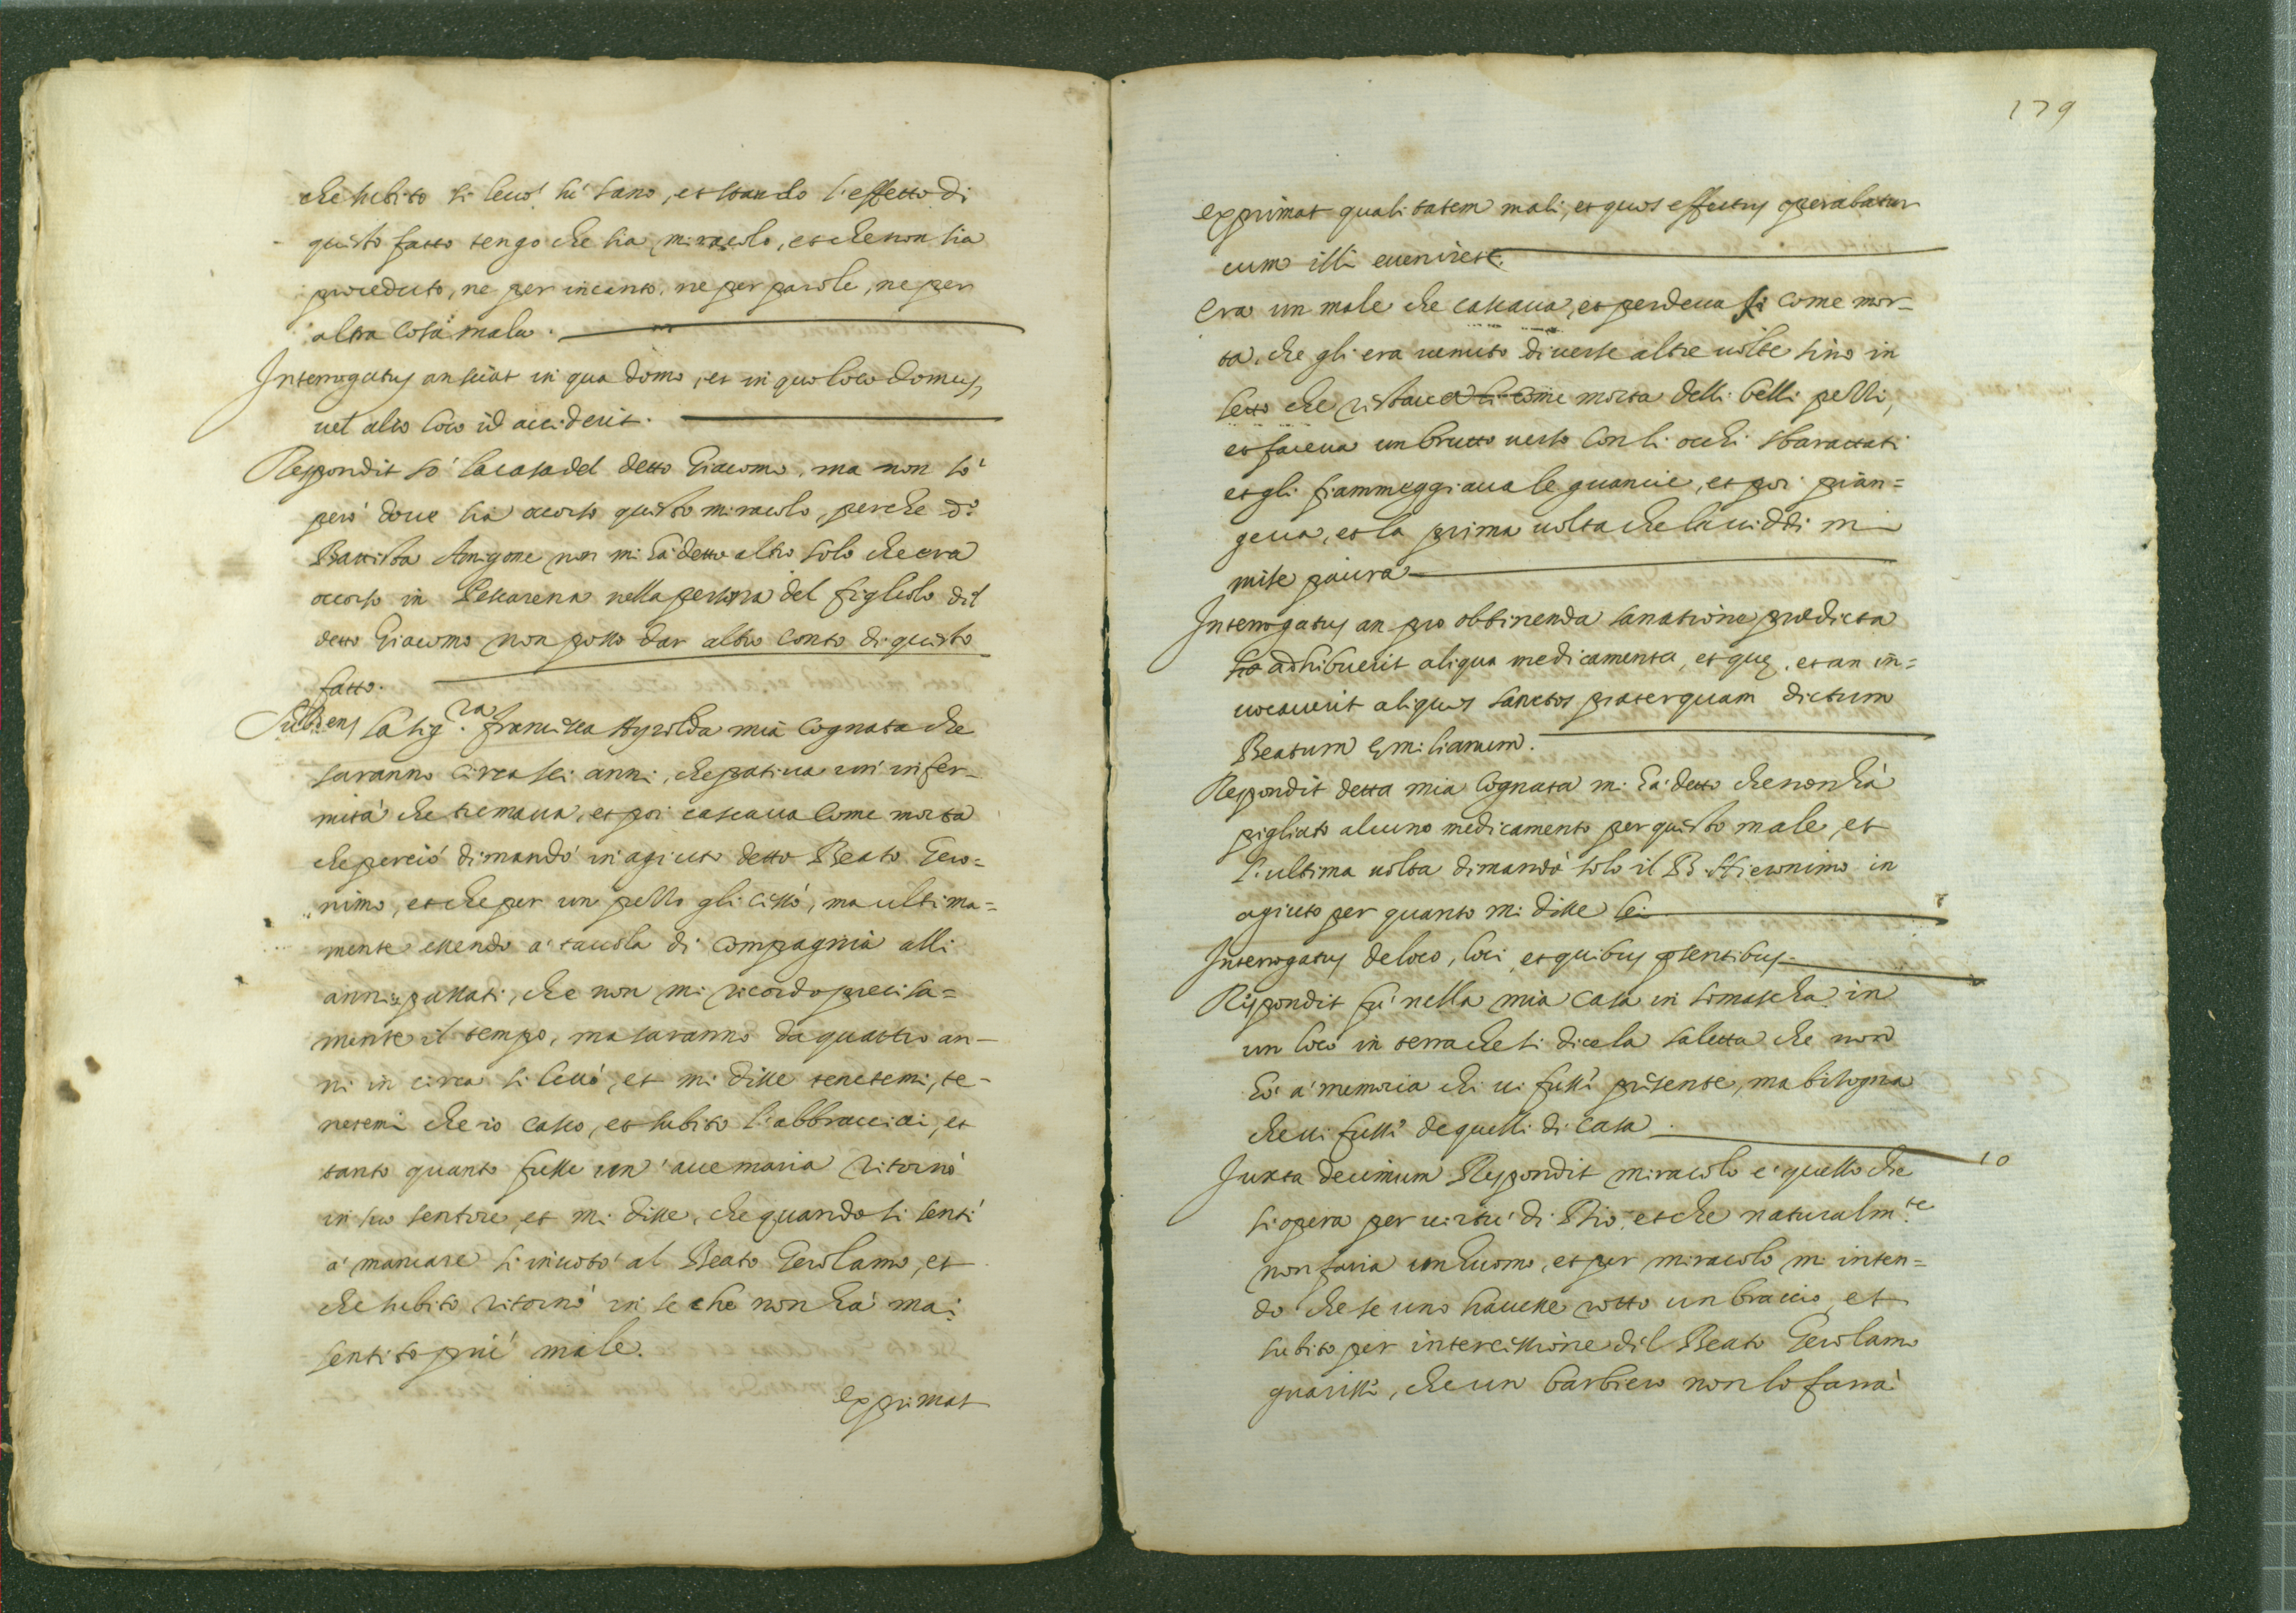 che subito si levò sù sano, et stando l'effetto di
questo fatto tengo che sia miracolo, et che non sia
proceduto, ne per incanto, ne per parole, ne per
altra cosa mala.
Interrogatus an sciat in qua domo, et in quo loco domus,
vel alio loco id acciderit.
Respondit sò la casa del detto Giacomo, ma non sò
però dove sia ocorso questo miracolo, perche d.º
Battista Amigone non mi hà detto altro solo che era
ocorso in Pescarena nella persona del figliolo del
detto Giacomo non posso dar altro conto di questo
fatto.
Subdens la sig.ra Francisca Ayrolda mia Cognata che
saranno circa sei anni, che pativa un' infer-
mità che tremava, et poi cascava come morta
che perciò dimandò in agiuto detto Beato Gero=
nimo, et che per un pezzo gli cessò, ma ultima=
mente essendo à tavola di compagnia alli
anni passati, che non mi ricordo precisa=
mente il tempo, ma saranno da quattro an-
ni in circa si levò, et mi disse tenetemi, te-
netemi che io casco, et subito l'abbracciai, et
tanto quanto fusse un' ave maria ritornò
in suo sentore, et mi disse, che quando si sentì
à mancare si invotò al Beato Gerolamo, et
che subito ritornò in se che non hà mai
sentito più male.
exprimat
179
exprimat qualitatem mali, et quos effectus operabatur
cum illi eveniret.
Era un male che cascava, et perdeva si come mor=
ta, che gli era venuto diverse altre volte sino in
letto che ristava si come morta delli belli pezzi,
et faceva un brutto verso con li occhi sbarattati
et gli fiammeggiava le guancie, et poi pian=
geva, et la prima volta che la viddi mi
mise paura
Interrogatus an pro obtinenda sanatione prædicta
adhibuerit aliqua medicamenta, et quę, et an in=
vocaverit aliquos sanctos praterquam dictum
Beatum Emilianum.
Respondit detta mia Cognata mi hà detto che non hà
pigliato alcuno medicamento per questo male, et
l'ultima volta dimandò solo il B. Hieronimo in
agiuto per quanto mi disse lei
Interrogatus de loco, loci, et quibus pñtibus
Respondit fù nella mia casa in Somascha in
un loco in terra che si dice la saletta che non
hò à memoria chi vi fussi presente, ma bisogna
che vi fussi de quelli di casa.
Juxta decimum Respondit miracolo è quello che 10
si opera per virtù di Dio, et che naturalm.te
non faria un huomo, et per miracolo mi inten=
do che se uno havesse rotto un braccio, et
subito per intercessione del Beato Gerolamo
guarissi, che un barbiero non lo farrà